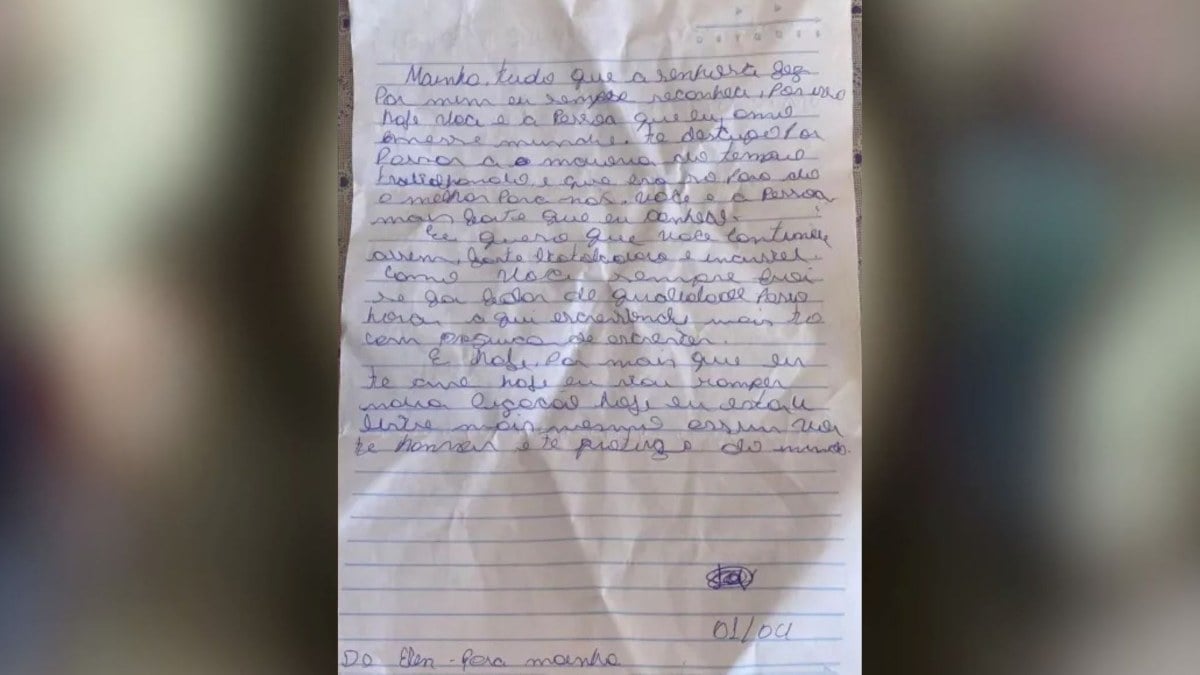 D S T Q Q S S
Mainha, tudo que a senhora fez
Por mim eu sempre reconheci, Por isso
hoje voce e a Pessoa que eu amo
nesse mundo. te desculpe Por
Passar a maioria do tempo
trabalhando, e que era so Para da
o melhor Para nos. Voce e a Pessoa
mais forte que eu conheci.
Eu quero que voce continue
assim, forte
como voce sempre
de qualidade
horas aqui escrevendo mais to
com preguiça de escrever.
E hoje, Por mais que eu
te ame hoje eu vou romper
nossa ligação hoje eu
mais mesmo assim vou
te honrar e te do mundo.
01/04
Do Elen - Para mainha